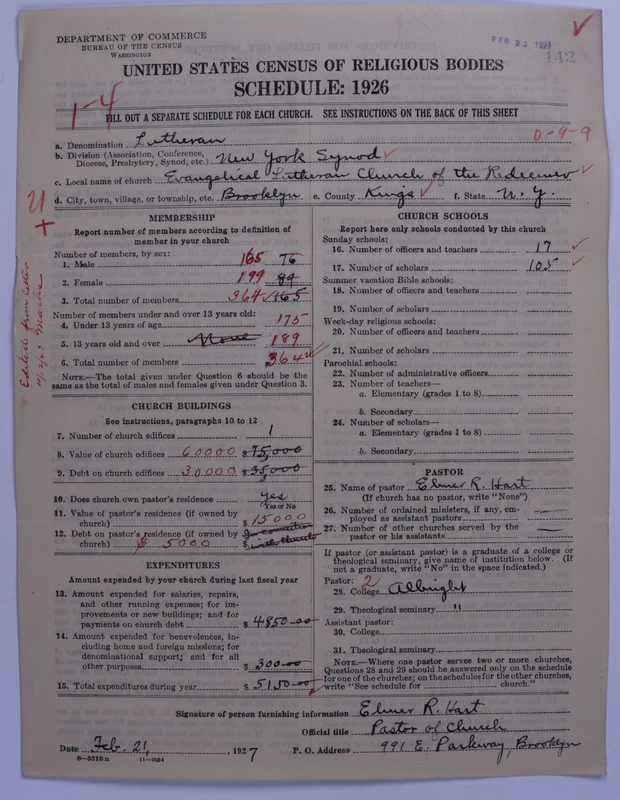 DEPARTMENT OF COMMERCE
BUREAU OF THE CENSUS
WASHINGTON
FEB 23 1927
142
UNITED STATES CENSUS OF RELIGIOUS BODIES
SCHEDULE: 1926
1-4
FILL OUT A SEPARATE SCHEDULE FOR EACH CHURCH. SEE INSTRUCTIONS ON THE BACK OF THIS SHEET
0-9-9
a. Denomination Lutheran
b. Division (Association, Conference, Diocese, Presbytery, Synod, etc.) New York Synod
c. Local name of church Evangelical Lutheran Church of the Redeemer
d. City, town, village, or township, etc. Brooklyn e. County Kings f. State N. Y.
MEMBERSHIP
Report number of members according to definition of
member in your church
Number of members, by sex:
1. Male 165 76
2. Female 199 89
3. Total number of members 364 165
Number of members under and over 13 years old:
4. Under 13 years of age 175
5. 13 years old and over None 189
6. Total number of members 364
NOTE.—The total given under Question 6 should be
same as the total of males and females given under Question 3.
CHURCH BUILDINGS
See instructions, paragraphs 10 to 12
7. Number of church edifices 1
8. Value of church edifices 60000 $75,000
9. Debt on church edifices 30000 $35,000
10. Does church own pastor's residence yes
Yes or No
11. Value of pastor's residence (if owned by
church) $15000
12. Debt on pastor's residence (if owned by
church) $ 5000 $ with church
EXPENDITURES
Amount expended by your church during last fiscal year
13. Amount expended for salaries, repairs,
and other running expenses; for im-
provements or new buildings; and for
payments on church debt $4850.00
14. Amount expended for benevolences, in-
cluding home and foreign missions; for
denominational support; and for all
other purposes $300.00
15. Total expenditures during year $5150.00
CHURCH SCHOOLS
Report here only schools conducted by this church
Sunday schools:
16. Number of officers and teachers 17
17. Number of scholars 105
Summer vacation Bible schools:
18. Number of officers and teachers
19. Number of scholars
Week-day religious schools:
20. Number of officers and teachers
21. Number of scholars
Parochial schools:
22. Number of administrative officers
23. Number of teachers—
a. Elementary (grades 1 to 8)
b. Secondary
24. Number of scholars—
a. Elementary (grades 1 to 8)
b. Secondary
PASTOR
25. Name of pastor Elmer R. Hart
(If church has no pastor, write "None")
26. Number of ordained ministers, if any, em-
ployed as assistant pastors —
27. Number of other churches served by the
pastor or his assistants —
If pastor (or assistant pastor) is a graduate of a college or
theological seminary, give name of institution below. (If
not a graduate, write "No" in the space indicated.)
Pastor: 2
28. College Albright
29. Theological seminary "
Assistant pastor:
30. College
31. Theological seminary
NOTE.—Where one pastor serves two or more churches,
Questions 28 and 29 should be answered only on the schedule
for one of the churches; on the schedules for the other churches,
write "See schedule for church."
Signature of person furnishing information Elmer R. Hart
Official title Pastor of Church
Date Feb. 21, 1927 P. O. Address 991 E. Parkway, Brooklyn
8—5518a 11—9054
Edited from letter